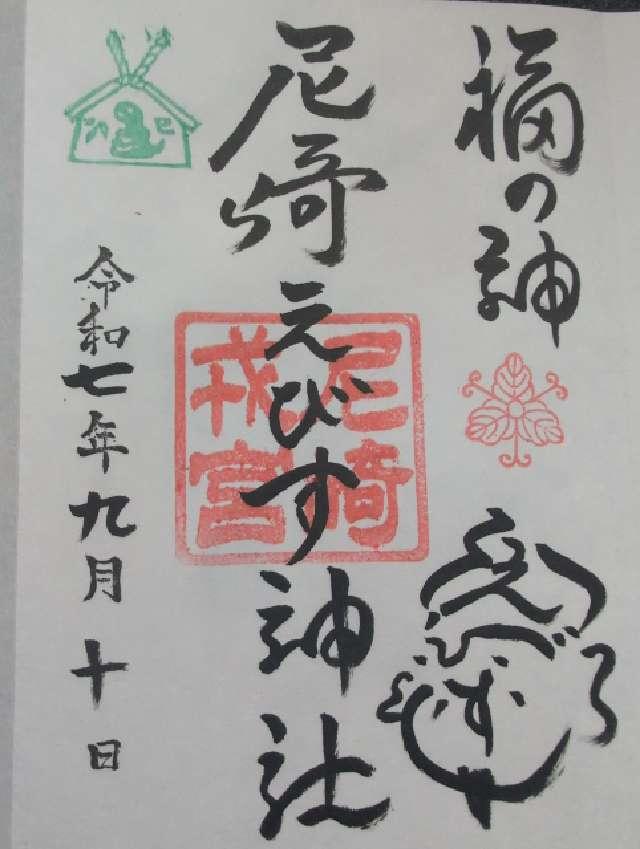 福の神
えびす
尼崎えびす神社
尼崎
戎宮
令和七年九月十日